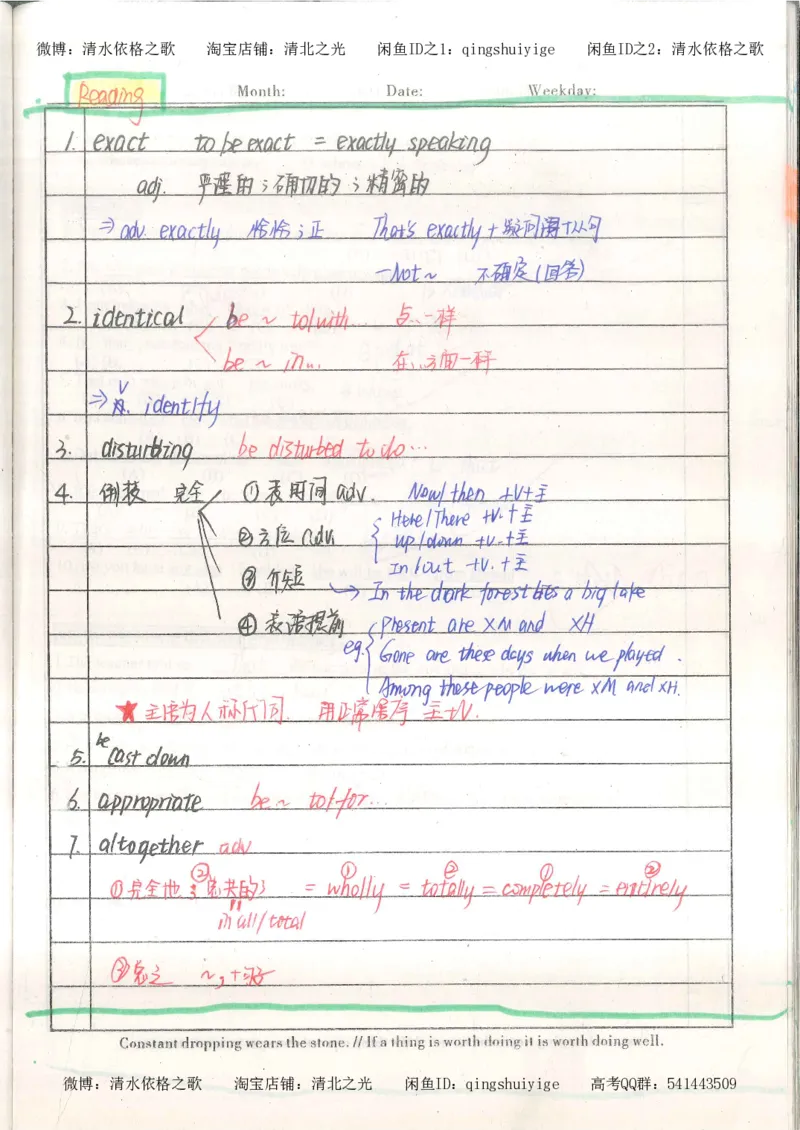 微博：清水依格之歌 淘宝店铺：清北之光 闲鱼ID之1：qingshuiyige 闲鱼ID之2：清水依格之歌
Reading Month: Date: Weekday:
1. exact to be exact = exactly speaking
adj. 严谨的；确切的；精密的
⇒ adv. exactly 恰恰；正 That's exactly + 疑问词+从句
—Not~ 不确定(回答)
2. identical be ~ to/with... 与...一样
be ~ in... 在...方面一样
⇒ v. identify
3. disturbing be disturbed to do...
4. 倒装 完全 ①表时间 adv. Now/then +V+主
Here/There +V.+主
②方位 adv. up/down +V.+主
In/out +V.+主
③介短 → In the dark forest lies a big lake
④表语提前 Present are XM and XH
eg. Gone are these days when we played.
Among these people were XM and XH.
★主语为人称代词，用正常语序 主+V.
5. be cast down
6. appropriate be ~ to/for...
7. altogether adv
①完全地；②总共的； = ①wholly = ②totally = ①completely = ②entirely
in all/total
③总之 ~,+句子
Constant dropping wears the stone. // If a thing is worth doing it is worth doing well.
微博：清水依格之歌 淘宝店铺：清北之光 闲鱼ID：qingshuiyige 高考QQ群：541443509